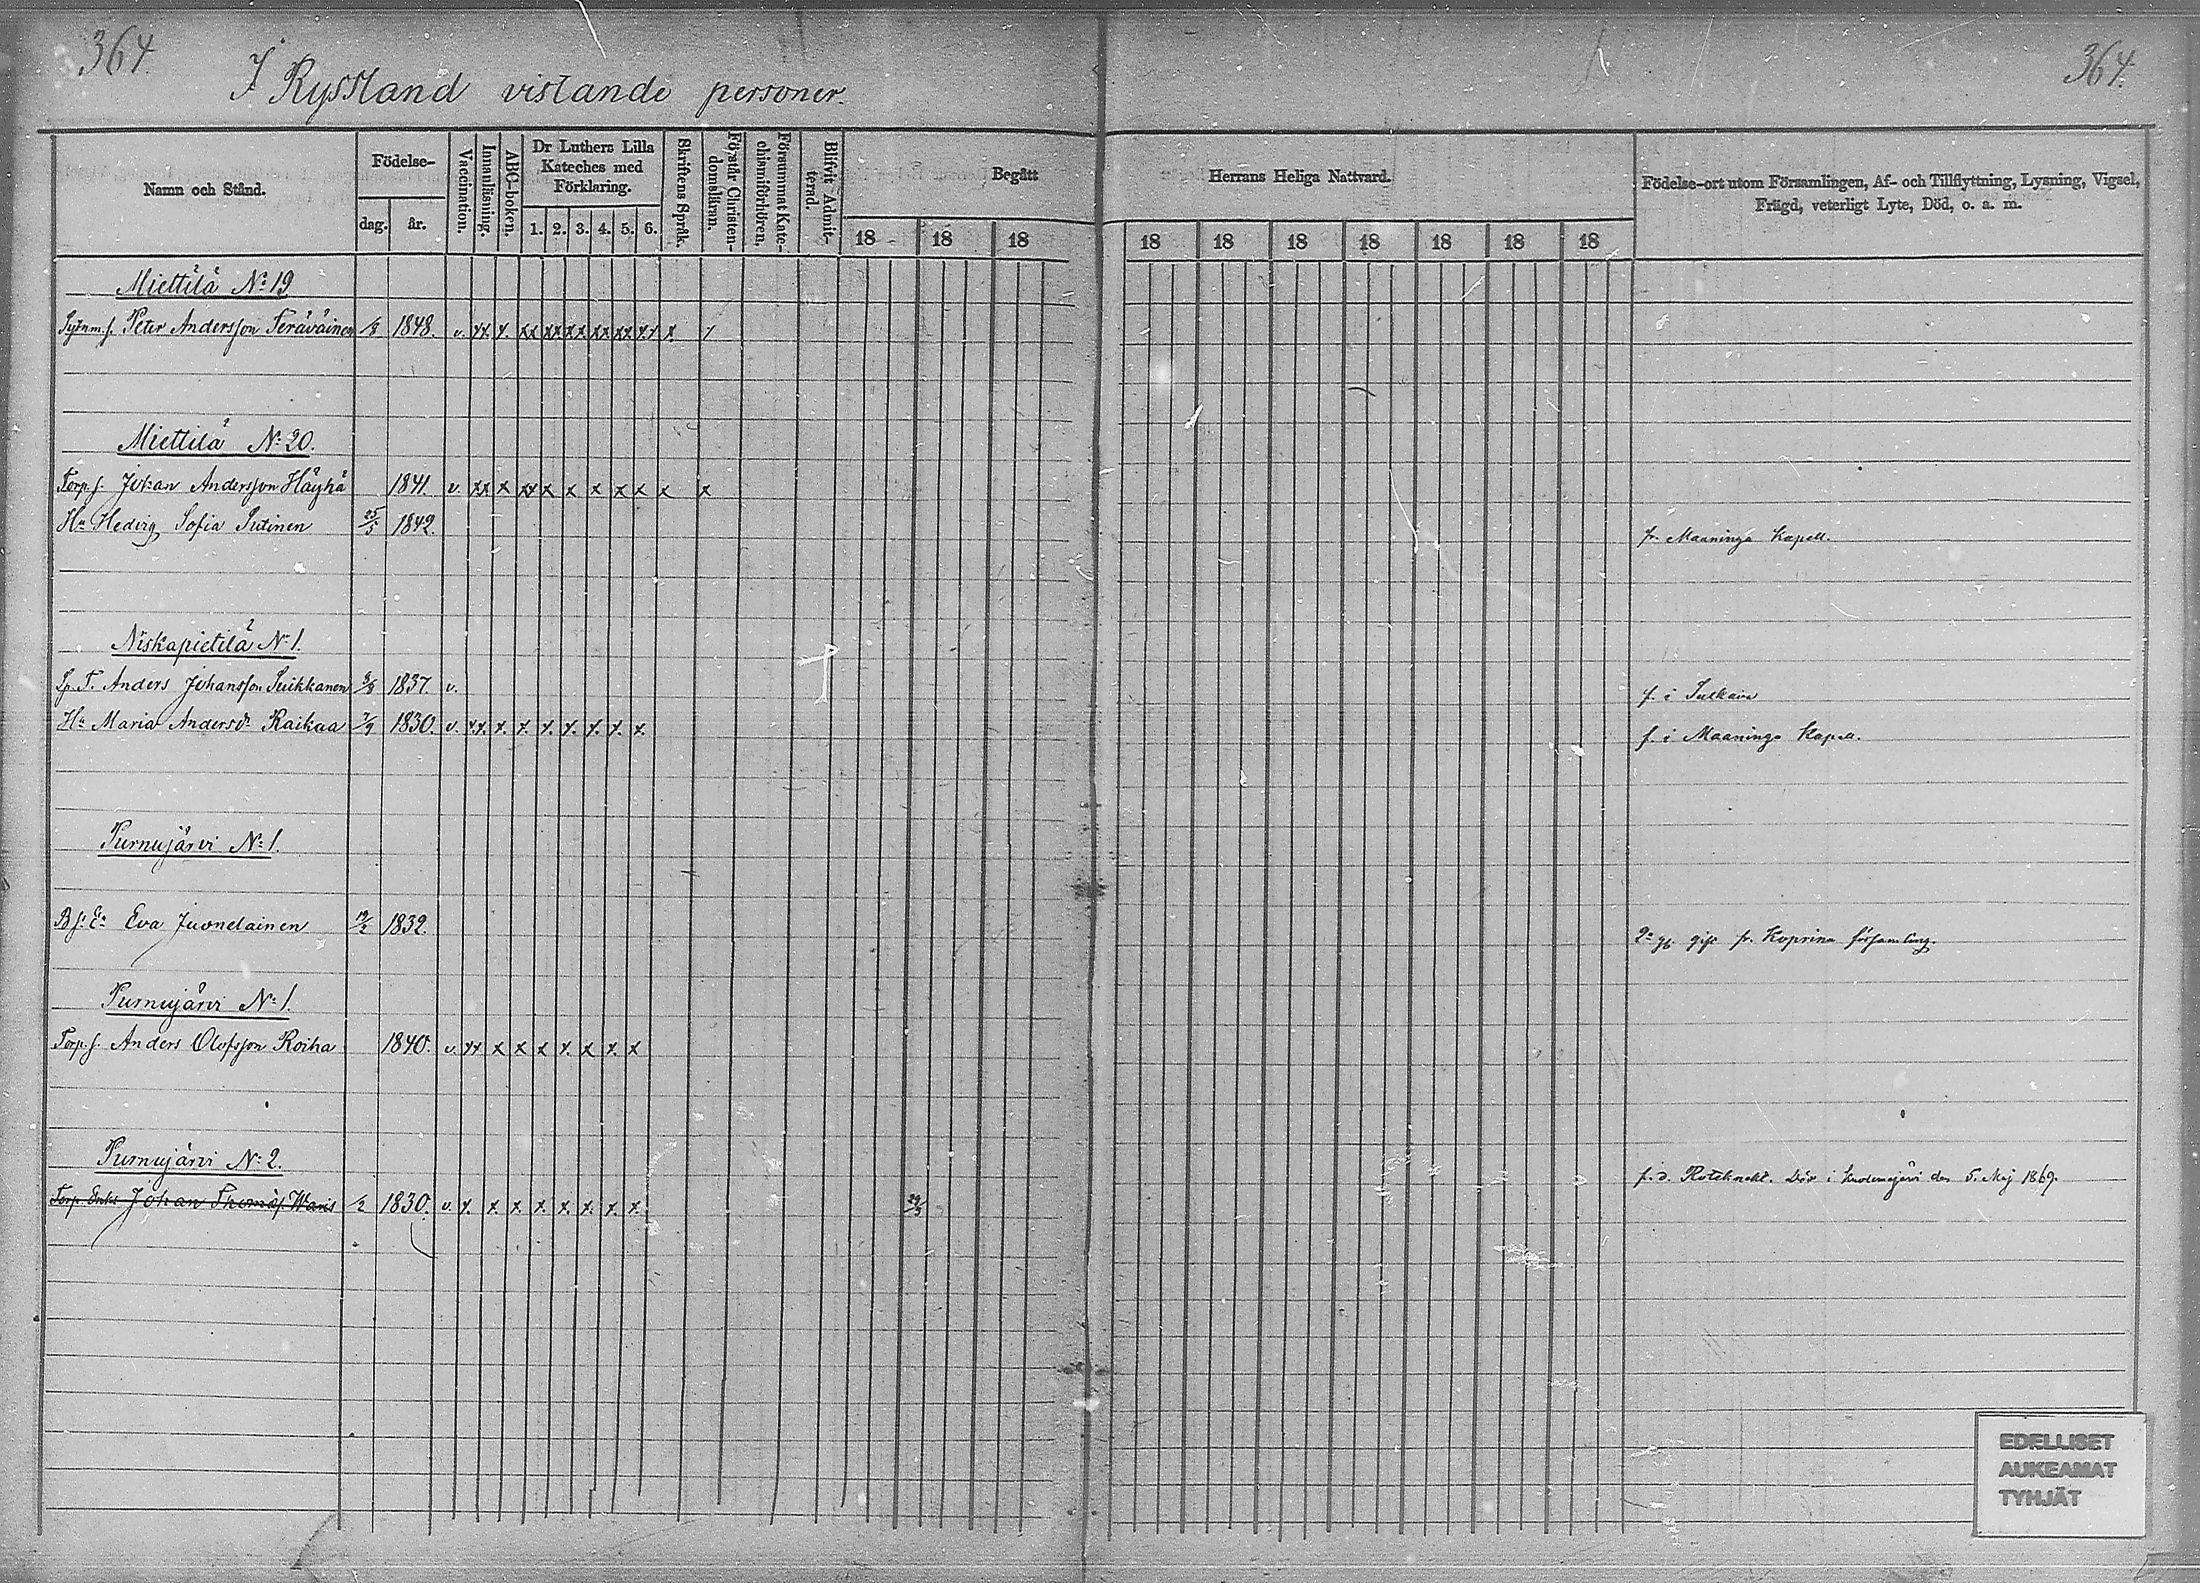 364.
364.
I Ryssland vistande personer.
Namn och Stånd.
Födelse-
dag.
år.
Vaccination.
Innanläsning.
ABC-boken.
Dr Luthers Lilla
Kateches med
Förklaring.
1. 2. 3. 4. 5. 6.
Skriftens Språk.
Förstår Christen-
domsläran.
Försummat Kate-
chismiförhören.
Blifvit Admit-
terad.
Begått
Herrans Heliga Nattvard.
18 18 18 18 18 18 18 18 18 18
Födelse-ort utom Församlingen, Af- och Tillflyttning, Lysning, Vigsel,
Frägd, veterligt Lyte, Död, o. a. m.
Miettilä No 19
Peter Andersson Teräväinen 1848. v. xx x. xx xx xx xx xx xx x. x
Miettilä No 20.
Torp.s. Johan Andersson Häyhä 1841. v. xx x xx x x x x x x x
Hu Hedvig Sofia Sutinen 25/5 1842. fr. Maaninga Kapell.
Niskapietilä No 1.
Anders Johansson Suikkanen 1837. v. f. i Sulkava
Hu Maria Andersdr Kaikaa 1830. v. xx. x. x. x. x. x. x. x. f. i Maaninga Kapell.
Purnujärvi No 1.
Eva Juonelainen 1832. gift fr. Koprina församling.
Purnujärvi No 1.
Torp.s. Anders Olofsson Roiha 1840. v. xx x x x x. x x. x
Purnujärvi No 2.
Torp. Enkl Johan Thomas. Waris 1/2 1830. v. x. x. x. x. x. x. x. x. 29/5 f.d. Roteknekt. Död i den 5. Maj 1869.
EDELLISET
AUKEAMAT
TYHJÄT